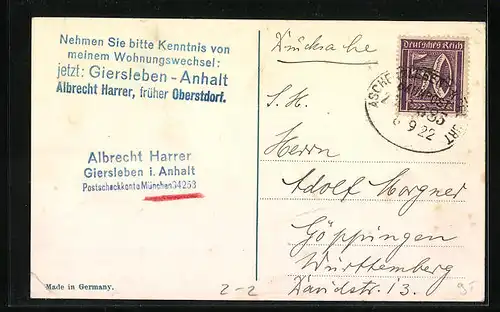 Nehmen Sie bitte Kenntnis von
meinem Wohnungswechsel:
jetzt: Giersleben - Anhalt
Albrecht Harrer, früher Oberstdorf.
Albrecht Harrer
Giersleben i. Anhalt
Postscheckkonto München 34253
Made in Germany.
2-2
Drucksache
Deutsches Reich
75
9 22
S. H.
Herrn
Adolf Morgner
Göppingen
Württemberg
Davidstr. 13.